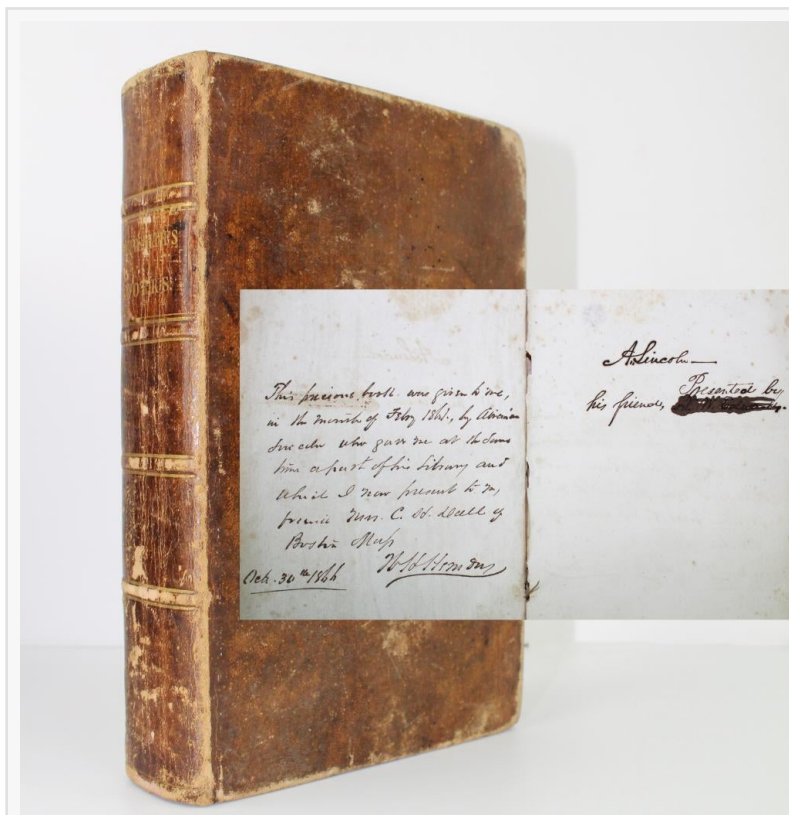 This precious book was given to me,
in the month of Feby 1861, by Abraham
Lincoln who gave me at the same
time a part of his Library and
which I now present to my
friend Mrs. C. H. Dall of
Boston Mass
Oct. 30th 1866 W H Herndon
A. Lincoln
Presented by
his friend,